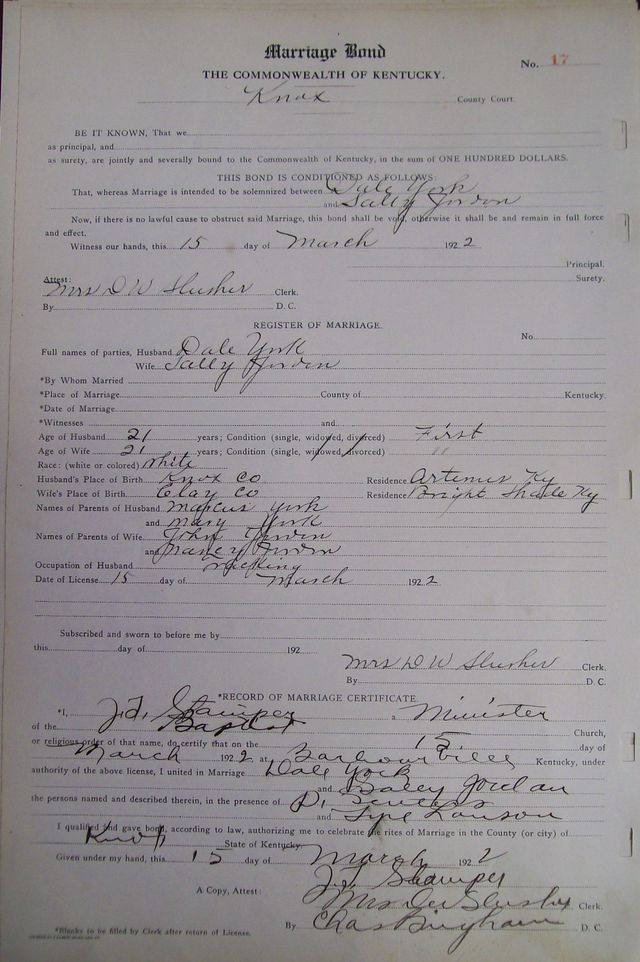 Marriage Bond
No. 17
THE COMMONWEALTH OF KENTUCKY.
Knox County Court.
BE IT KNOWN, That we
as principal, and
as surety, are jointly and severally bound to the Commonwealth of Kentucky, in the sum of ONE HUNDRED DOLLARS.
THIS BOND IS CONDITIONED AS FOLLOWS:
That, whereas Marriage is intended to be solemnized between Dale York
and Sally Jordon
Now, if there is no lawful cause to obstruct said Marriage, this bond shall be void, otherwise it shall be and remain in full force
and effect.
Witness our hands, this 15 day of March 1922
Principal.
Surety.
Attest:
Mrs D W Slusher Clerk.
By D. C.
REGISTER OF MARRIAGE.
No.
Full names of parties, Husband Dale York
Wife Sally Jordon
*By Whom Married
*Place of Marriage County of Kentucky.
*Date of Marriage
*Witnesses and
Age of Husband 21 years; Condition (single, widowed, divorced) First
Age of Wife 21 years; Condition (single, widowed, divorced) "
Race: (white or colored) White
Husband's Place of Birth Knox Co Residence Artemus Ky
Wife's Place of Birth Clay Co Residence Bright Shade Ky
Names of Parents of Husband Marcus York
and Mary York
Names of Parents of Wife John Jordon
and Nancy Jordon
Occupation of Husband
Date of License 15 day of March 1922
Subscribed and sworn to before me by
this day of 192
Mrs D W Slusher Clerk.
By D. C.
*RECORD OF MARRIAGE CERTIFICATE.
*I, J. J. Stamper a Minister
of the Baptist Church,
or religious order of that name, do certify that on the 15 day of
March 1922 at Barbourville Kentucky, under
authority of the above license, I united in Marriage Dale York
and Saley Jordan
the persons named and described therein, in the presence of
and Lawson
I qualified and gave bond, according to law, authorizing me to celebrate the rites of Marriage in the County (or city) of
Knox State of Kentucky.
Given under my hand, this 15 day of March 1922
J. J. Stamper
A Copy, Attest: Mrs D W Slusher Clerk.
By Chas Bingham D. C.
*Blanks to be filled by Clerk after return of License.